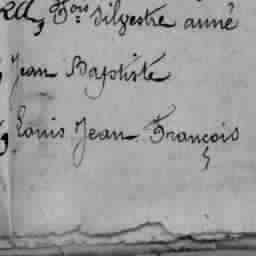 fois Silvestre anné
Jean Baptiste
Louis Jean François